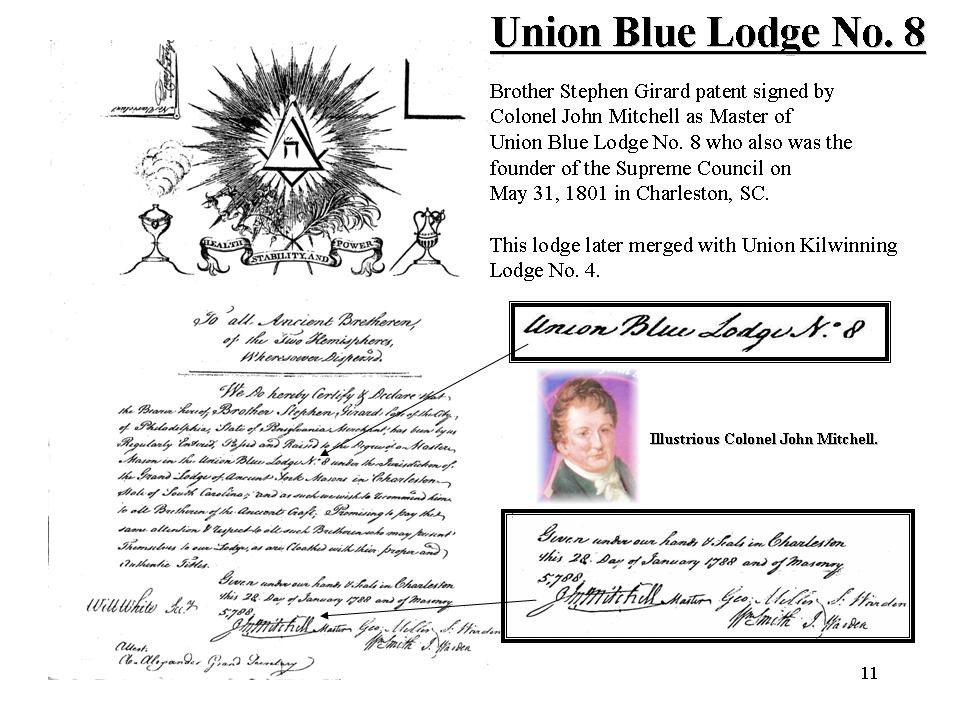 Union Blue Lodge No. 8
Brother Stephen Girard patent signed by
Colonel John Mitchell as Master of
Union Blue Lodge No. 8 who also was the
founder of the Supreme Council on
May 31, 1801 in Charleston, SC.
This lodge later merged with Union Kilwinning
Lodge No. 4.
ה
HEALTH
STABILITY, AND
POWER
To all Ancient Bretheren,
of the Two Hemispheres,
Wheresoever Dispersd.
We Do hereby Certify & Declare that
the Bearer hereof, Brother Stephen Girard of the City
of Philadelphia, State of Pensylvania Merchant, has been by us
Regularly Entered, Passed and Raised to the Degree of a Master
Mason in the Union Blue Lodge No. 8 under the Jurisdiction of
the Grand Lodge of Ancient York Masons in Charleston
State of South Carolina; and as such we wish to recommend him
to all Bretheren of the Ancient Craft; Promising to pay the
same attention & respect to all such Bretheren who may present
Themselves to our Lodge, as are Cloathed with their proper and
Authentic Titles.
Given under our hands & Seals in Charleston
this 28. Day of January 1788 and of Masonry
5,788.
Will White Secy
Jn Mitchell Master Geo: Miller S: Warden
Wm Smith J. Warden
Attest
Alexander Grand Secretary
Union Blue Lodge No. 8
Illustrious Colonel John Mitchell.
Given under our hands & Seals in Charleston
this 28. Day of January 1788 and of Masonry
5,788.
Jn Mitchell Master Geo: Miller S: Warden
Wm Smith J. Warden
11